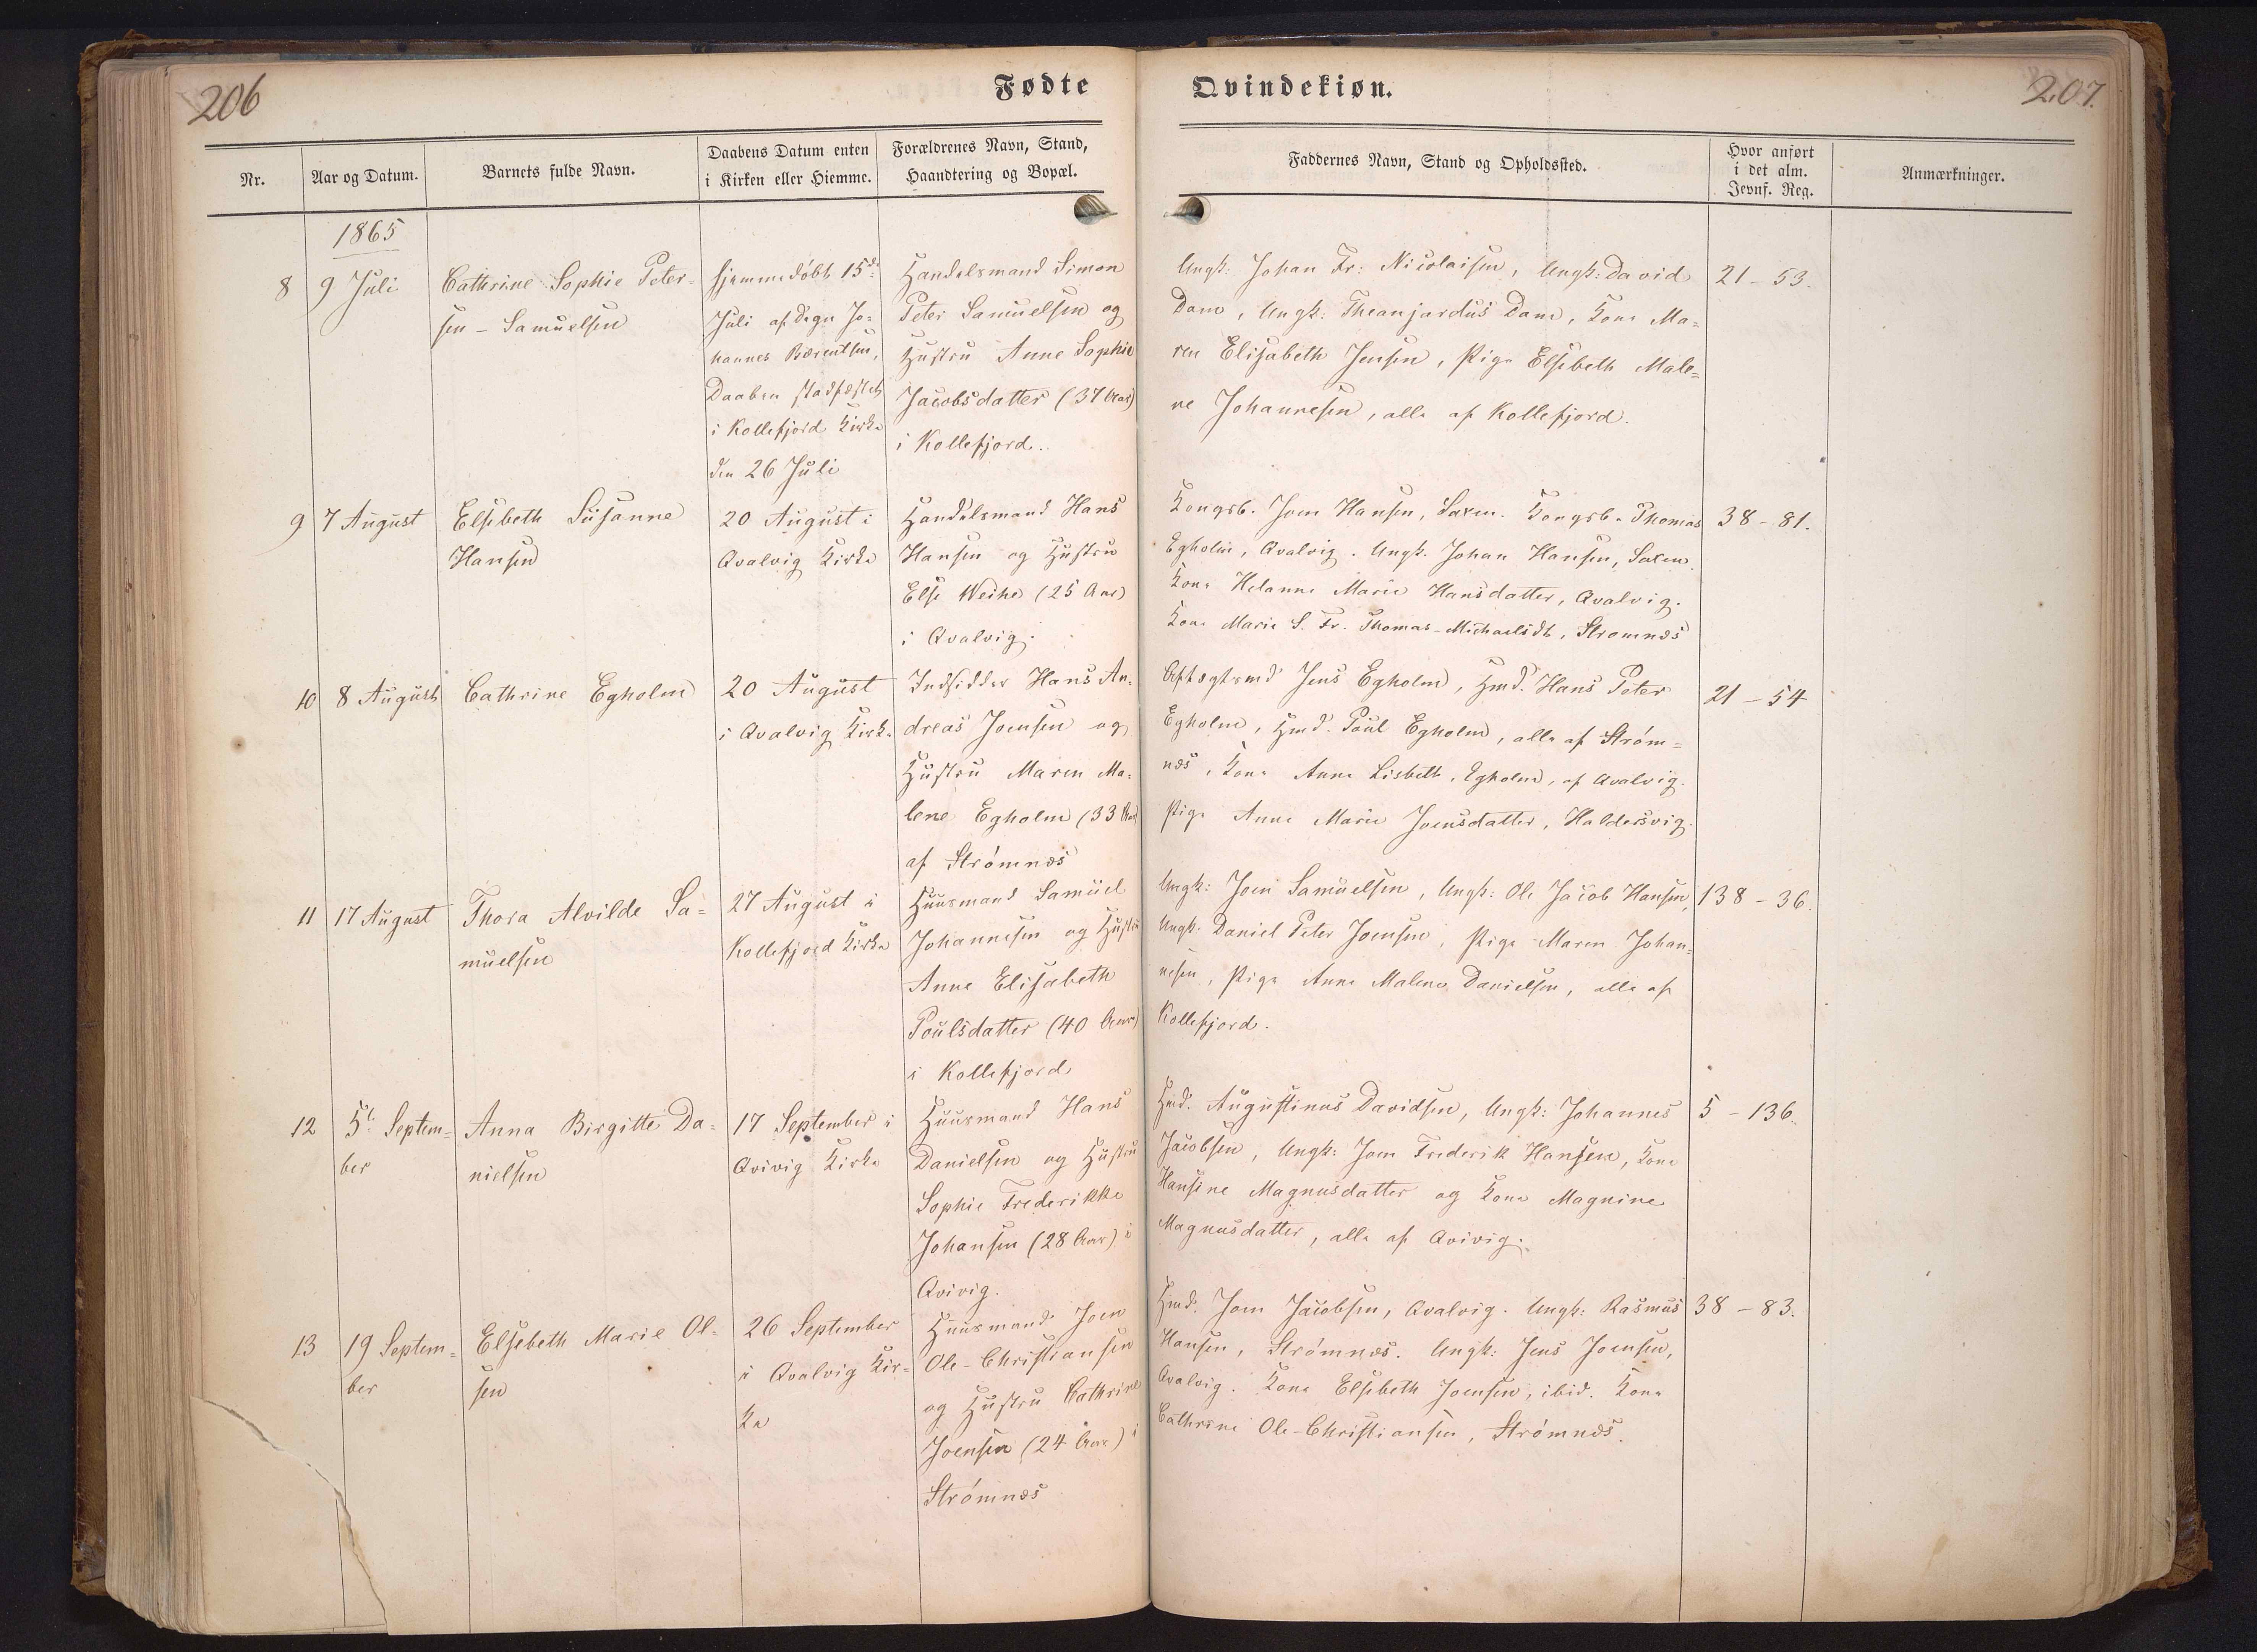 206
Fødte
Qvindekiøn.
207.
Nr.
Aar og Datum.
Barnets fulde Navn.
Daabens Datum enten
i Kirken eller Hiemme.
Forældrenes Navn, Stand,
Haandtering og Bopæl.
Faddernes Navn, Stand og Opholdssted.
Hvor anført
i det alm.
Jevnf. Reg.
Anmærkninger.
1865
8
9 Juli
Cathrine Sophie Peter-
sen - Samuelsen
hjemmedøbt 15de
Juli af Degn Jo=
hannes Bærentsen,
Daaben stadfæstet
i Kollefjord Kirke
den 26 Juli
Handelsmand Simon
Peter Samuelsen og
Hustru Anne Sophie
Jacobsdatter (37 Aar)
i Kollefjord.
Ungk: Johan Fr: Nicolaisen, Ungk: David
Dam, Ungk: Theanjardus Dam, Kone Ma=
ren Elisabeth Jensen, Pige Elsebeth Male=
ne Johannesen, alle af Kollefjord.
21 - 53.
9
7 August
Elsebeth Susanne
Hansen
20 August i
Qvalvig Kirke
Handelsmand Hans
Hansen og Hustru
Else Weihe (25 Aar)
i Qvalvig.
Kongsb. Joen Hansen, Saxen. Kongsb. Thomas
Egholm, Qvalvig. Ungk. Johan Hansen, Saxen.
Kone Helanne Marie Hansdatter, Qvalvig.
Kone Marie S. Fr. Thomas-Michaelsdt, Strømnæs
38 - 81.
10
8 August
Cathrine Egholm
20 August
i Qvalvig Kirke
Indsidder Hans An=
dreas Joensen og
Hustru Maren Ma=
lene Egholm (33 Aar)
af Strømnæs
Aftægtsmd Jens Egholm, Hmd. Hans Peter
Egholm, Hmd. Poul Egholm, alle af Strøm=
næs, Kone Anne Lisbeth Egholm, af Qvalvig.
Pige Anne Marie Joensdatter, Haldersvig.
21 - 54
11
17 August
Thora Alvilde Sa=
muelsen
27 August i
Kollefjord Kirke
Huusmand Samuel
Johannesen og Hustru
Anne Elisabeth
Poulsdatter (40 Aar)
i Kollefjord
Ungk: Joen Samuelsen, Ungk: Ole Jacob Hansen,
Ungk: Daniel Peter Joensen, Pige Maren Johan=
nesen, Pige Anne Malene Danielsen, alle af
Kollefjord.
138 - 36.
12
5te Septem=
ber
Anna Birgitte Da=
nielsen
17 September i
Qvivig Kirke
Huusmand Hans
Danielsen og Hustru
Sophie Frederikke
Johansen (28 Aar) i
Qvivig.
Hmd. Augustinus Davidsen, Ungk: Johannes
Jacobsen, Ungk: Joen Frederik Hansen, Kone
Hansine Magnusdatter og Kone Magnine
Magnusdatter, alle af Qvivig.
5 - 136.
13
19 Septem=
ber
Elsebeth Marie Ol=
sen
26 September
i Qvalvig Kir=
ke
Huusmand Joen
Ole-Christiansen
og Hustru Cathrine
Joensen (24 Aar) i
Strømnæs
Hmd. Joen Jacobsen, Qvalvig. Ungk: Rasmus
Hansen, Strømnæs. Ungk: Jens Joensen,
Qvalvig. Kone Elsebeth Joensen, ibid. Kone
Cathrine Ole-Christiansen, Strømnæs.
38 - 83.